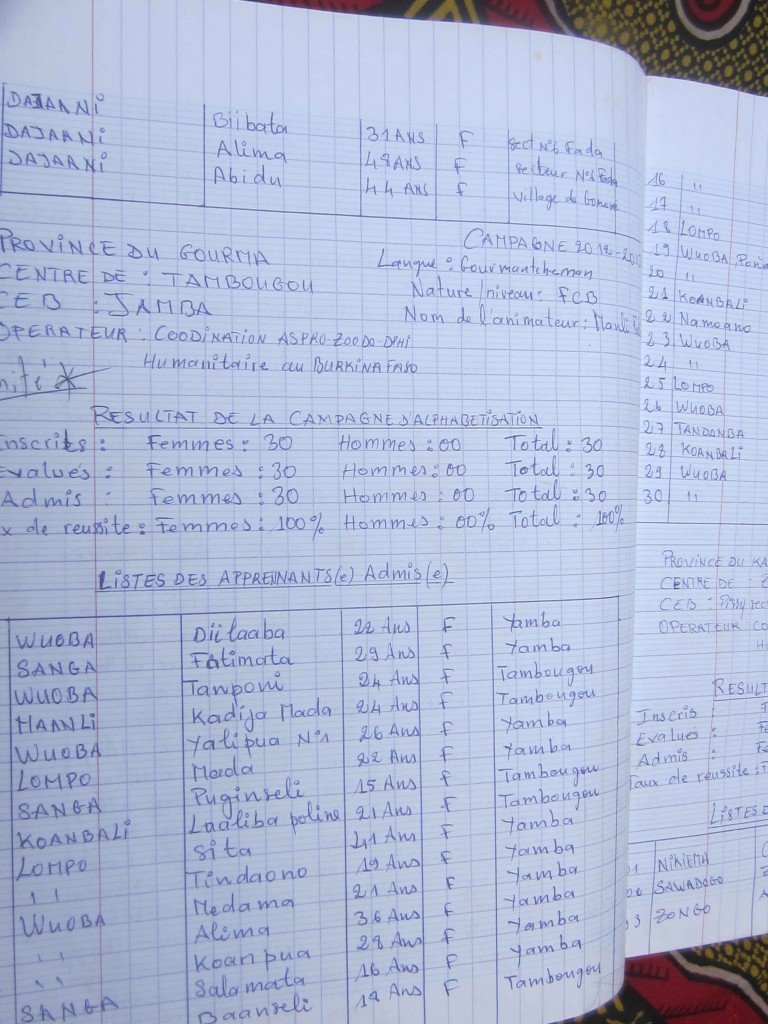 DAJAANI Biibata 31 ANS F sect N°6 Fada
DAJAANI Alima 48 ANS F secteur N°6 Fada
DAJAANI Abidu 44 ANS F village de
PROVINCE DU GOURMA CAMPAGNE 2018-
CENTRE DE : TAMBOUGOU Langue : Gourmantcheman
CEB : JAMBA Nature/niveau : FCB
OPERATEUR : COODINATION ASPRO-ZOODO-DPHI Nom de l'animateur :
Humanitaire au BURKINA FASO
RESULTAT DE LA CAMPAGNE D'ALPHABETISATION
Inscrits : Femmes : 30 Hommes : 00 Total : 30
Evalués : Femmes : 30 Hommes : 00 Total : 30
Admis : Femmes : 30 Hommes : 00 Total : 30
x de reussite : Femmes : 100% Hommes : 00% Total : 100%
LISTES DES APPRENNANTS(e) Admis(e)
WUOBA Diilaaba 22 Ans F Yamba
SANGA Fatimata 29 Ans F Yamba
WUOBA Tanponi 24 Ans F Tambougou
HAANLI Kadija Mada 24 Ans F Tambougou
WUOBA Yalipua N°1 26 Ans F Yamba
LOMPO Mada 22 Ans F Yamba
SANGA Puginseli 15 Ans F Tambougou
KOANBALI Laaliba poline 21 Ans F Tambougou
LOMPO Sita 41 Ans F Yamba
" Tindaono 19 Ans F Yamba
WUOBA Medama 21 Ans F Yamba
" Alima 36 Ans F Yamba
" Koanpua 28 Ans F Yamba
Salamata 16 Ans F Yamba
SANGA Baanseli 19 Ans F Tambougou
16 "
17 "
18 LOMPO
19 WUOBA
20 "
21 KOANBALI
22 Namoano
23 WUOBA
24 "
25 LOMPO
26 WUOBA
27 TANDANBA
28 KOANBALI
29 WUOBA
30 "
PROVINCE DU KA
CENTRE DE :
CEB :
OPERATEUR CO
RESULT
Inscris :
Evalues :
Admis :
Taux de reussite :
LISTES D
NIKIEMA
SAWADOGO
ZONGO